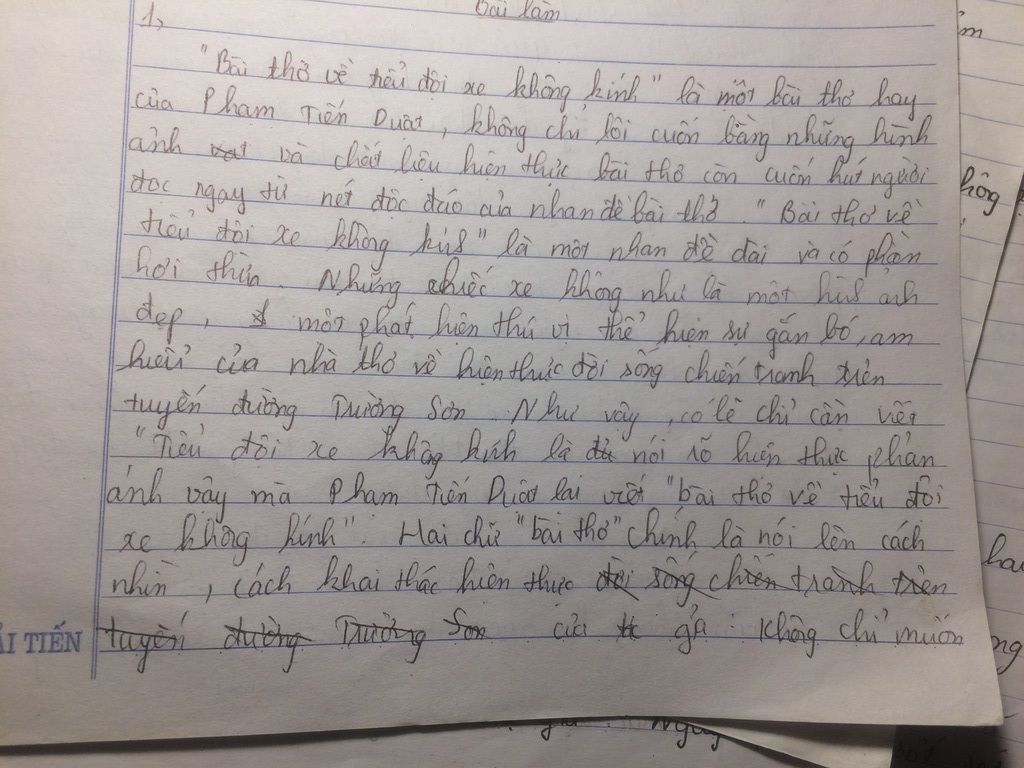 Bài làm
1,
"Bài thơ về tiểu đội xe không kính" là một bài thơ hay
của Phạm Tiến Duật, không chỉ lôi cuốn bằng những hình
ảnh và chất liệu hiện thực bài thơ còn cuốn hút người
đọc ngay từ nét độc đáo của nhan đề bài thơ. "Bài thơ về
tiểu đội xe không kính" là một nhan đề dài và có phần
hơi thừa. Những chiếc xe không như là một hình ảnh
đẹp, một phát hiện thú vị thể hiện sự gắn bó, am
hiểu của nhà thơ về hiện thực đời sống chiến tranh trên
tuyến đường Trường Sơn. Như vậy, có lẽ chỉ cần viết
"Tiểu đội xe không kính là đủ nói rõ hiện thực phản
ánh vậy mà Phạm Tiến Duật lại viết "bài thơ về tiểu đội
xe không kính". Hai chữ "bài thơ" chính là nói lên cách
nhìn, cách khai thác hiện thực đời sống chiến tranh trên
tuyến đường Trường Sơn của gả: Không chỉ muốn
ẢI TIẾN